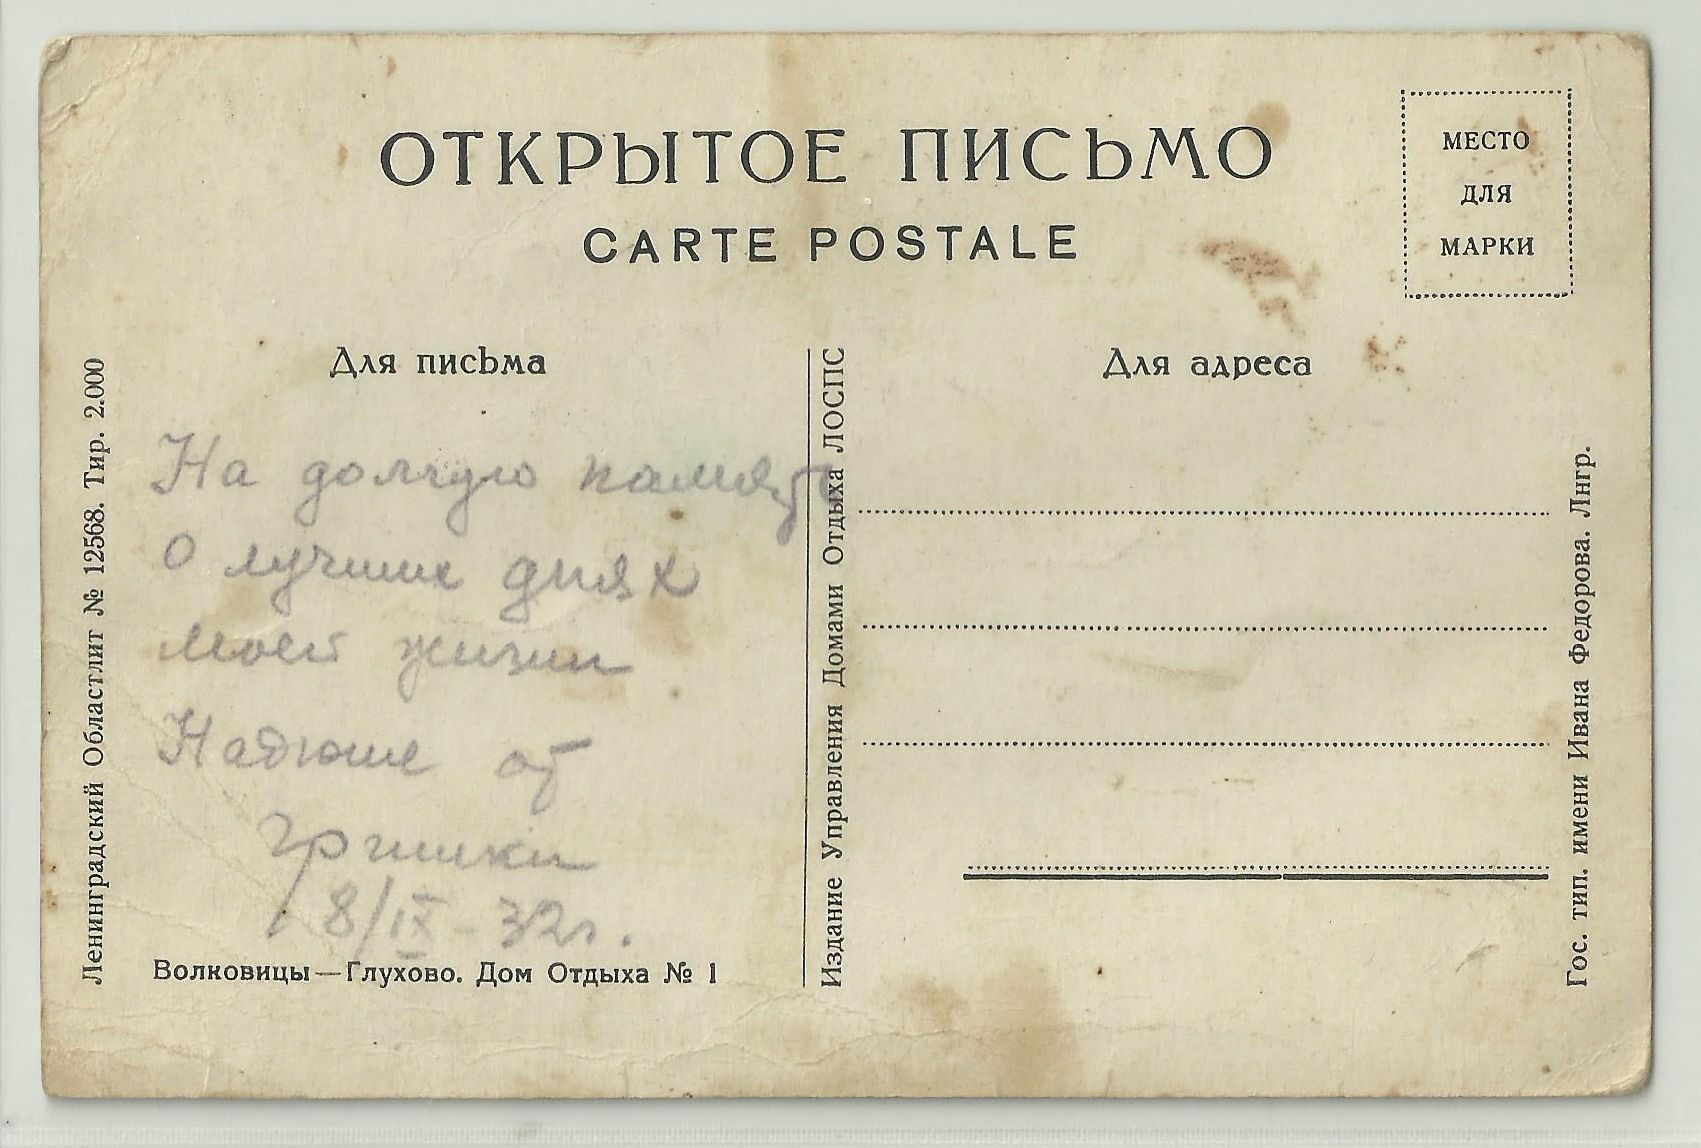 ОТКРЫТОЕ ПИСЬМО
CARTE POSTALE
МЕСТО
ДЛЯ
МАРКИ
Для письма
На долгую память
о лучших днях
моей жизни
Надюше от
Гришки
8/IX-32г.
Волковицы—Глухово. Дом Отдыха № 1
Ленинградский Областлит № 12568. Тир. 2.000
Издание Управления Домами Отдыха ЛОСПС
Для адреса
Гос. тип. имени Ивана Федорова. Лнгр.